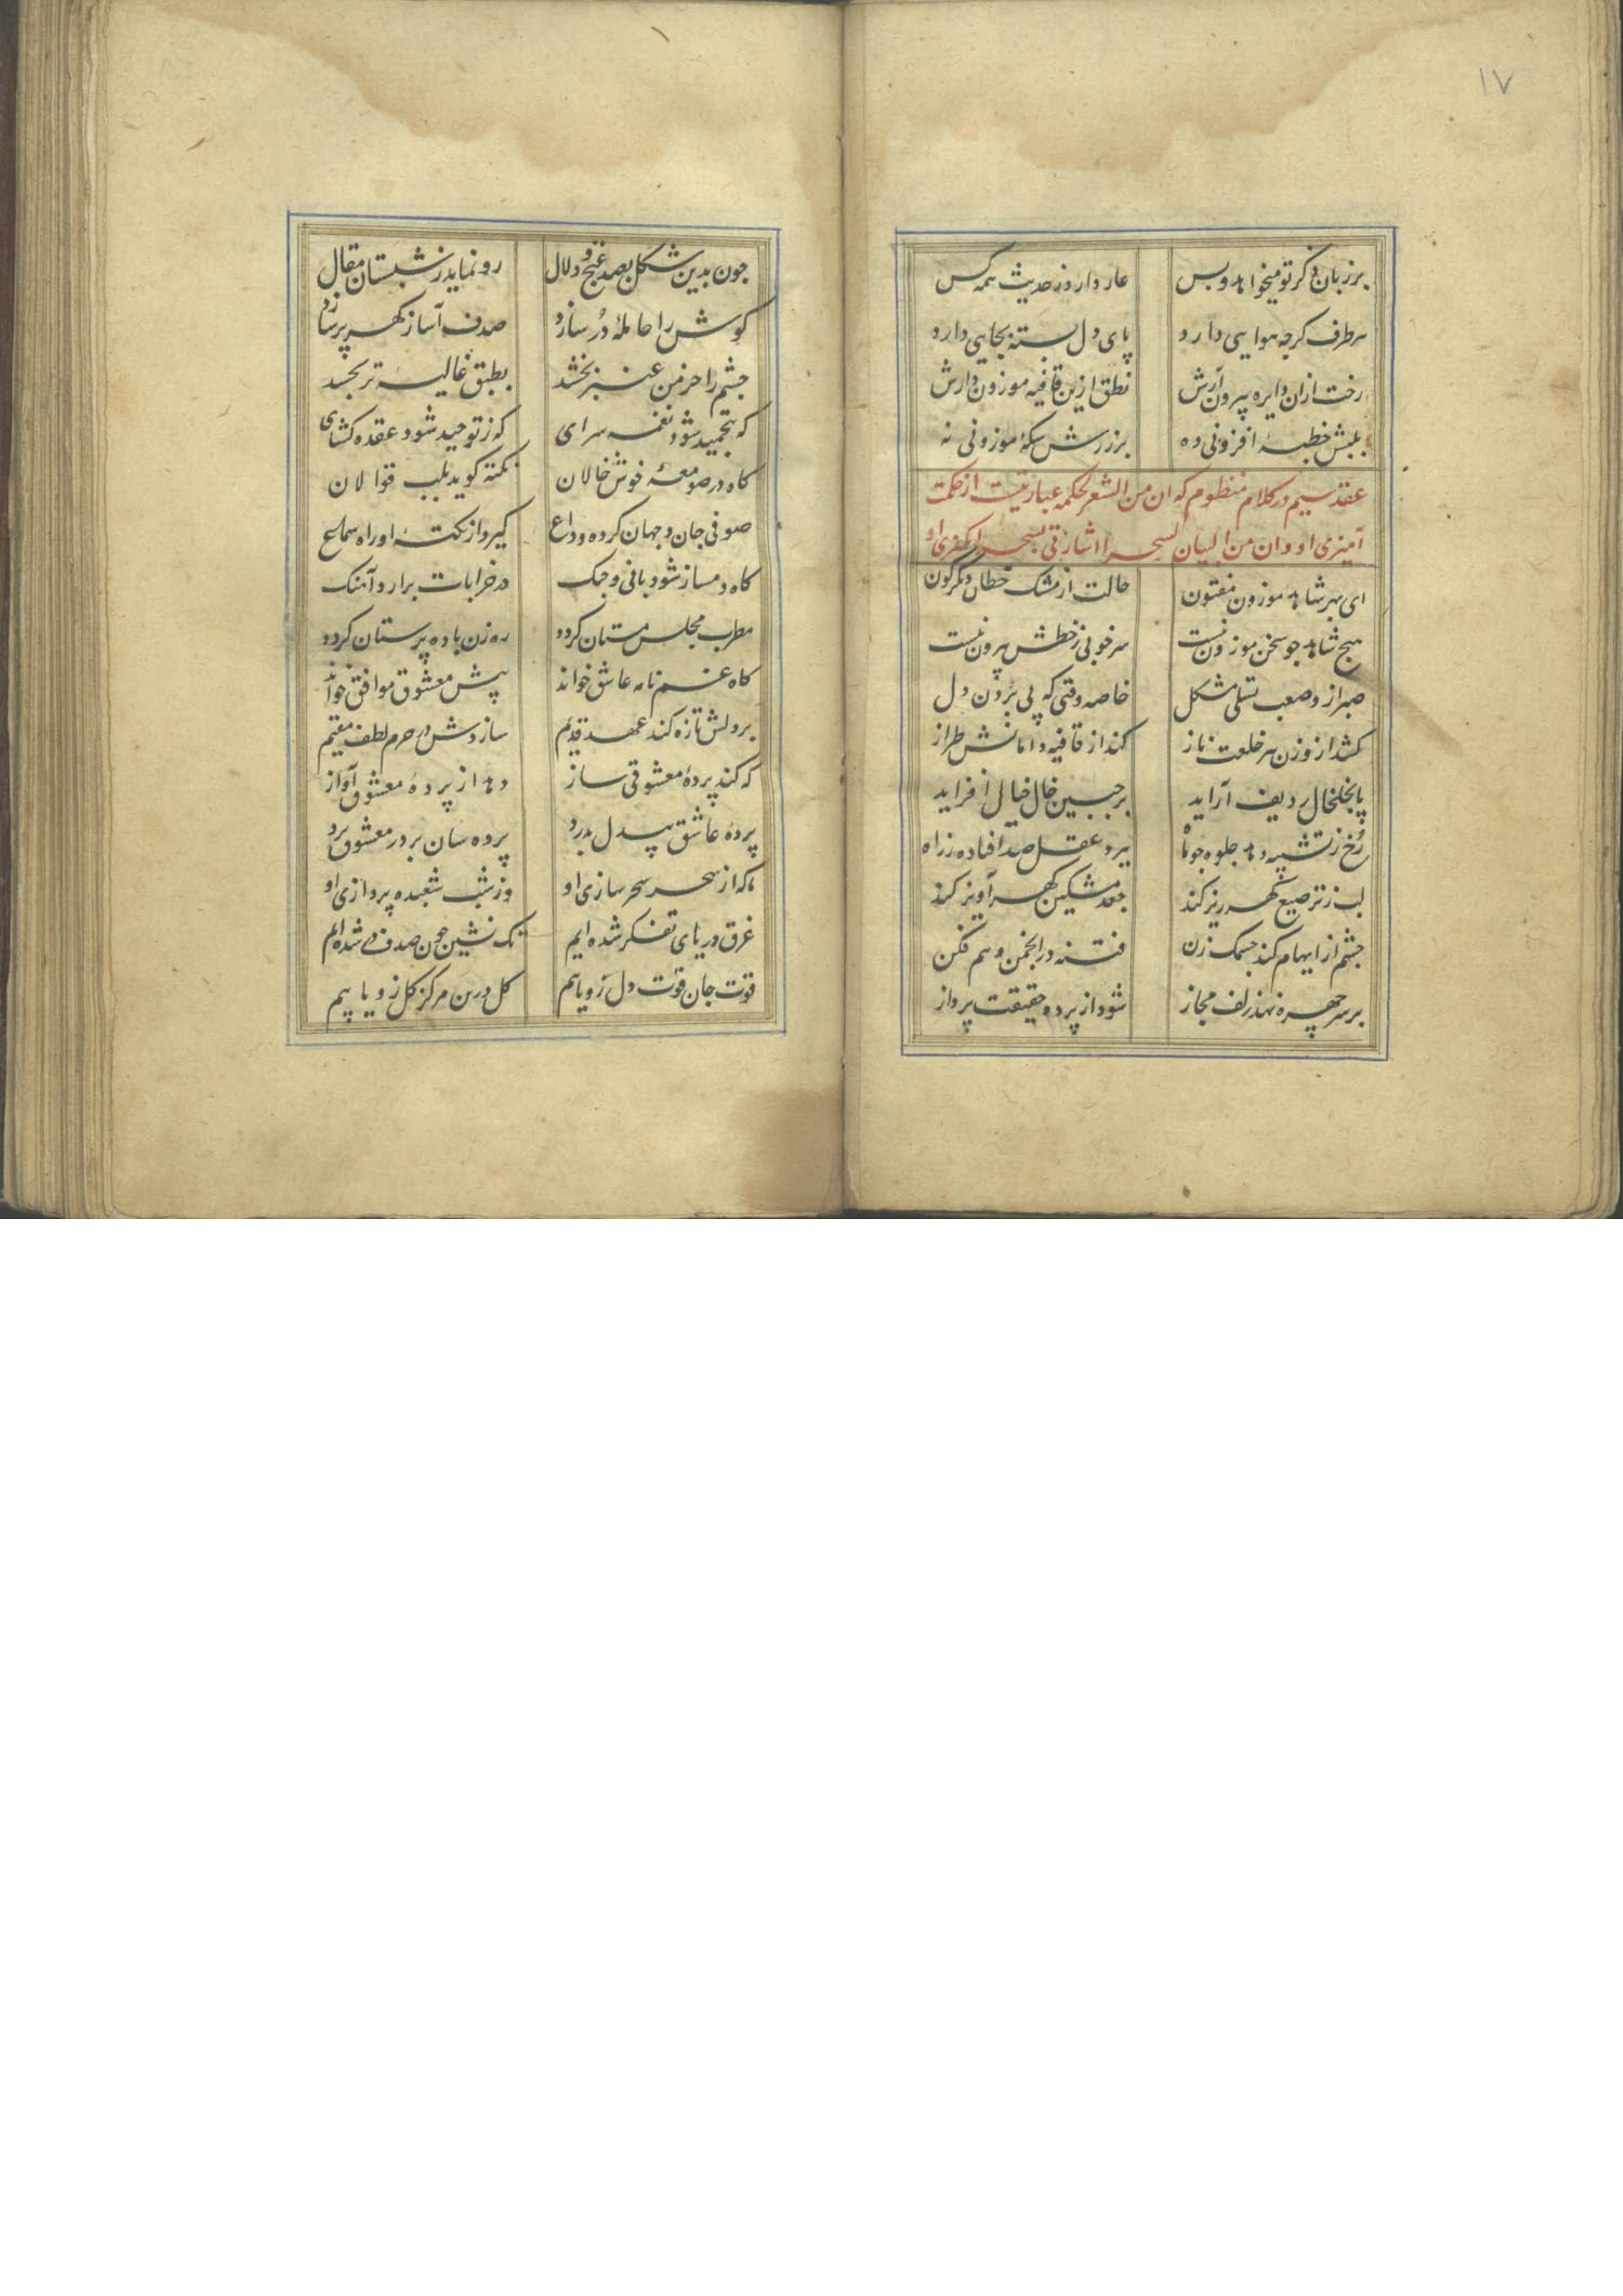 ۱۷
بر زبان ذکر تو میخواهد و بس عار دارد ز حدیث همه کس
هر طرف کرچه هوایی دارد پای دل بسته بجایی دارد
رخت ازان دایره بیرون آرش نطق ازین قافیه موزون دارش
بلبش خطبهٔ افزونی ده بر زرش سکهٔ موزونی نه
عقد سیم در کلام منظوم که ان من الشعر لحکمه عبارتیست از حکمت
آمیزی او و ان من البیان لسحرا اشارتی بسحر انکیزی او
ای بهر شاهد موزون مفتون حالت از مشک خطان دکرکون
هیچ شاهد جو سخن موزون نیست سر خوبی ز خطش بیرون نیست
صبر ازو صعب تسلی مشکل خاصه وقتی که پی بردن دل
کشد از وزن ببر خلعت ناز کند از قافیه دامانش طراز
پا بخلخال ردیف آراید بر جبین خال خیال افزاید
رخ ز تشبیه دهد جلوه جو ماه ببرد عقل صد افتاده ز راه
لب ز ترصیع کهر ریز کند جعد مشکین کهر آویز کند
جشم از ایهام کند جشمک زن فتنه در انجمن وهم فکن
بر سر چهره نهد زلف مجاز شود از پرده حقیقت پرداز
جون بدین شکل بصد غنج و دلال رو نماید ز شبستان مقال
کوش را حاملهٔ در سازد صدف آسا ز کهر پر سازد
جشم را خرمن عنبر بخشد بطبق غالیهٔ تر بخشد
که بتحمید شود نغمه سرای که ز توحید شود عقده کشای
کاه در صومعهٔ خوش حالان نکته کوید بلب قوالان
صوفی جان و جهان کرده وداع کیرد از نکتهٔ او راه سماع
کاه دمساز شود با نی و جنک در خرابات برارد آهنک
مطرب مجلس مستان کردد ره زن باده پرستان کردد
کاه غم نامه عاشق خواند پیش معشوق موافق خواند
بر دلش تازه کند عهد قدیم سازدش در حرم لطف مقیم
که کند پردهٔ معشوقی ساز دهد از پردهٔ معشوق آواز
پردهٔ عاشق بیدل بدرد پرده سان بر در معشوق برد
ما که از سحر سحر سازی او وز شب شعبده پردازی او
غرق دریای تفکر شده ایم تک نشین جون صدف در شده ایم
قوت جان قوت دل زو یابیم کل درین مرکز کل زو یابیم